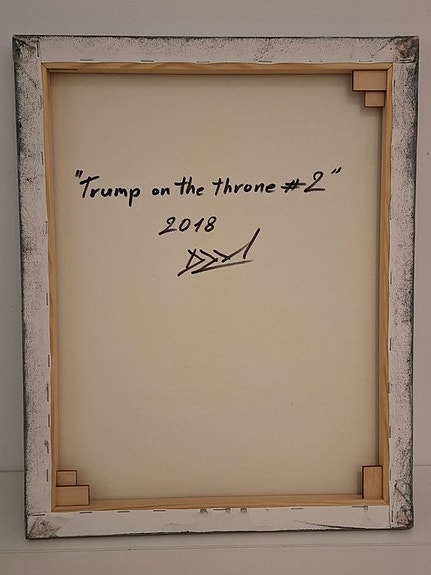 "Trump on the throne #2"
2018